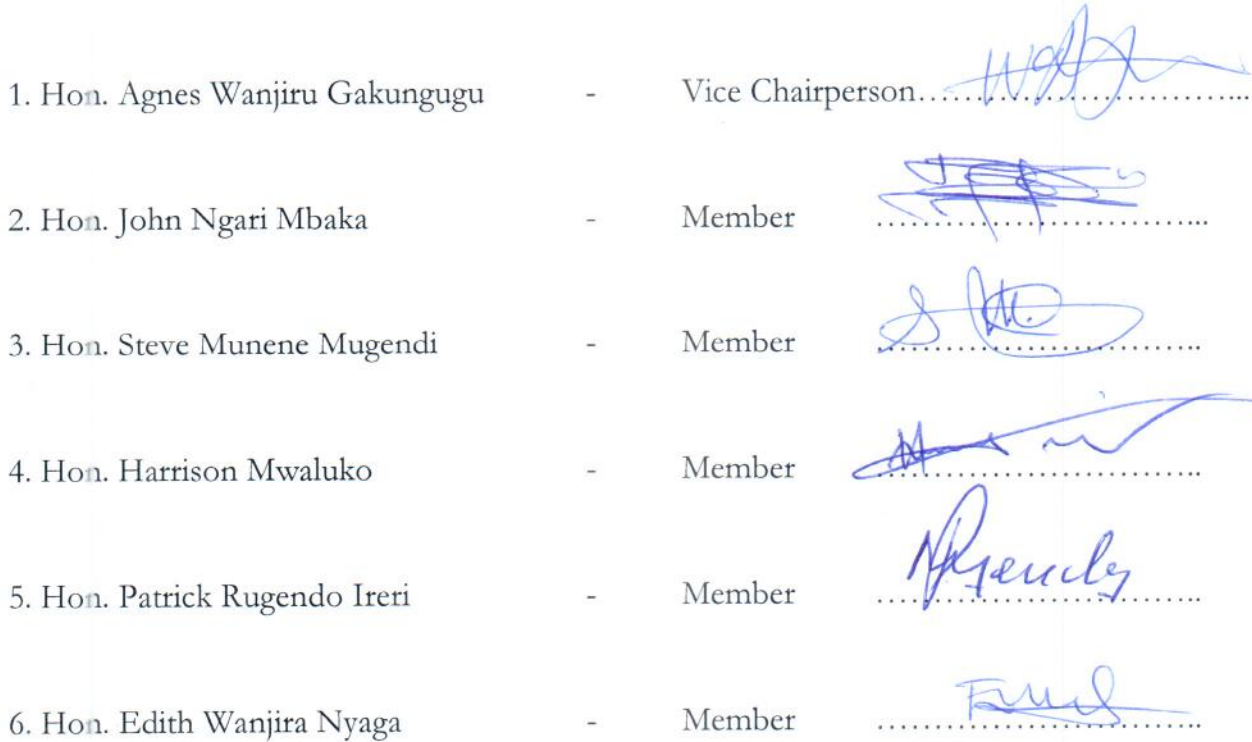 1. Hon. Agnes Wanjiru Gakungugu - Vice Chairperson……………………………...
2. Hon. John Ngari Mbaka - Member ……………………………...
3. Hon. Steve Munene Mugendi - Member ……………………………..
4. Hon. Harrison Mwaluko - Member ……………………………..
5. Hon. Patrick Rugendo Ireri - Member ……………………………..
6. Hon. Edith Wanjira Nyaga - Member ……………………………..